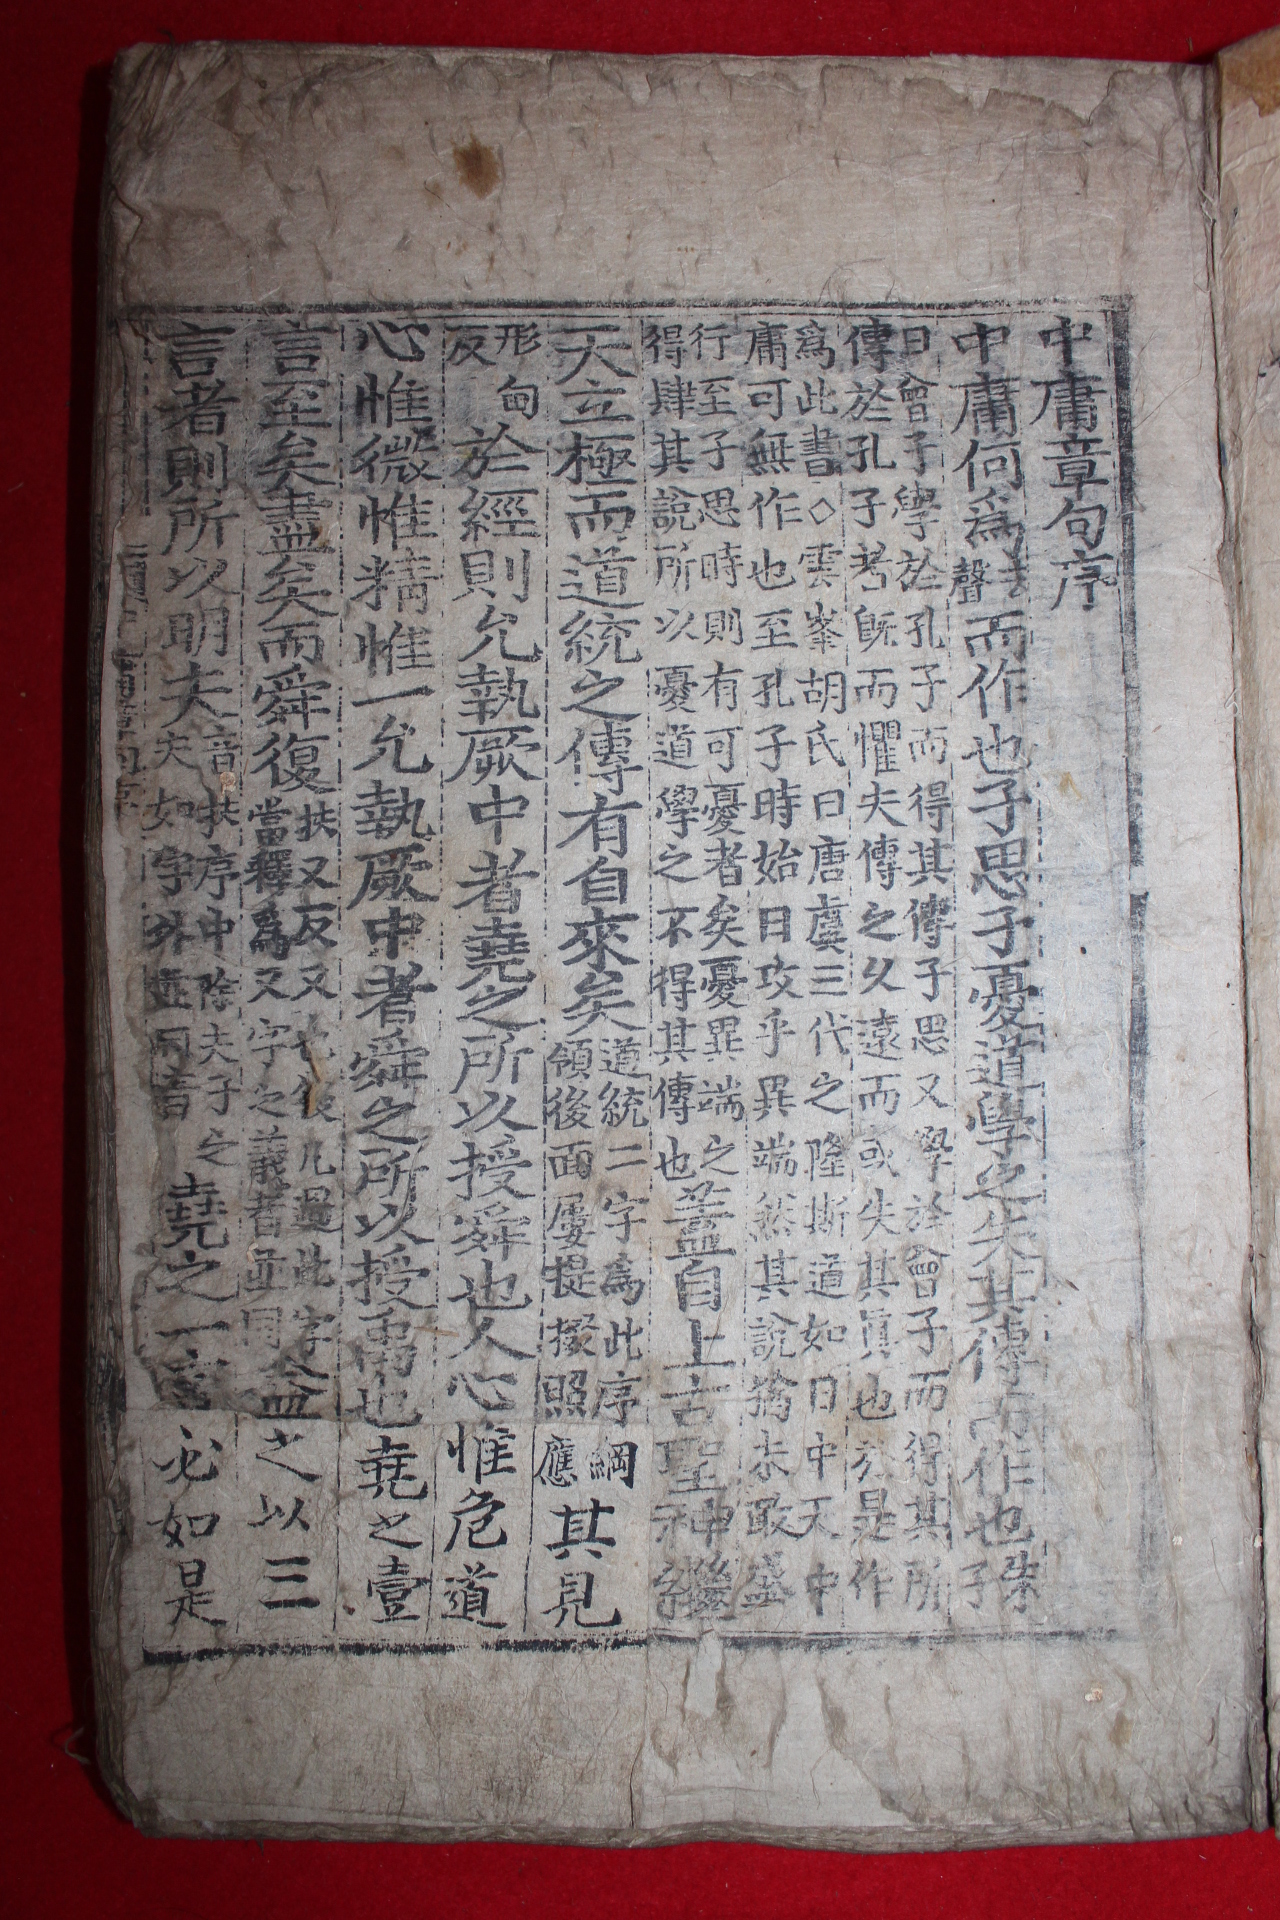 中庸章句序
中庸何爲去聲而作也子思子憂道學之失其傳而作也朱子
曰曾子學於孔子而得其傳子思又學於曾子而得其所
傳於孔子者旣而懼夫傳之久遠而或失其眞也於是作
爲此書◇雲峯胡氏曰唐虞三代之隆斯道如日中天中
庸可無作也至孔子時始曰攻乎異端然其說猶未敢盛
行至子思時則有可憂者矣憂異端之
得肆其說所以憂道學之不得其傳也盖自上古聖神繼
天立極而道統之傳有自來矣道統二字爲此序綱
領後面屢提掇照應其見
形甸反於經則允執厥中者堯之所以授舜也人心惟危道
心惟微惟精惟一允執厥中者舜之所以授禹也堯之壹
言至矣盡矣而舜復扶又反又也後凡遇此字
當釋爲又字之義者並同益之以三
言者則所以明夫音扶序中除夫子之
夫如字外並同音堯之一言必如是